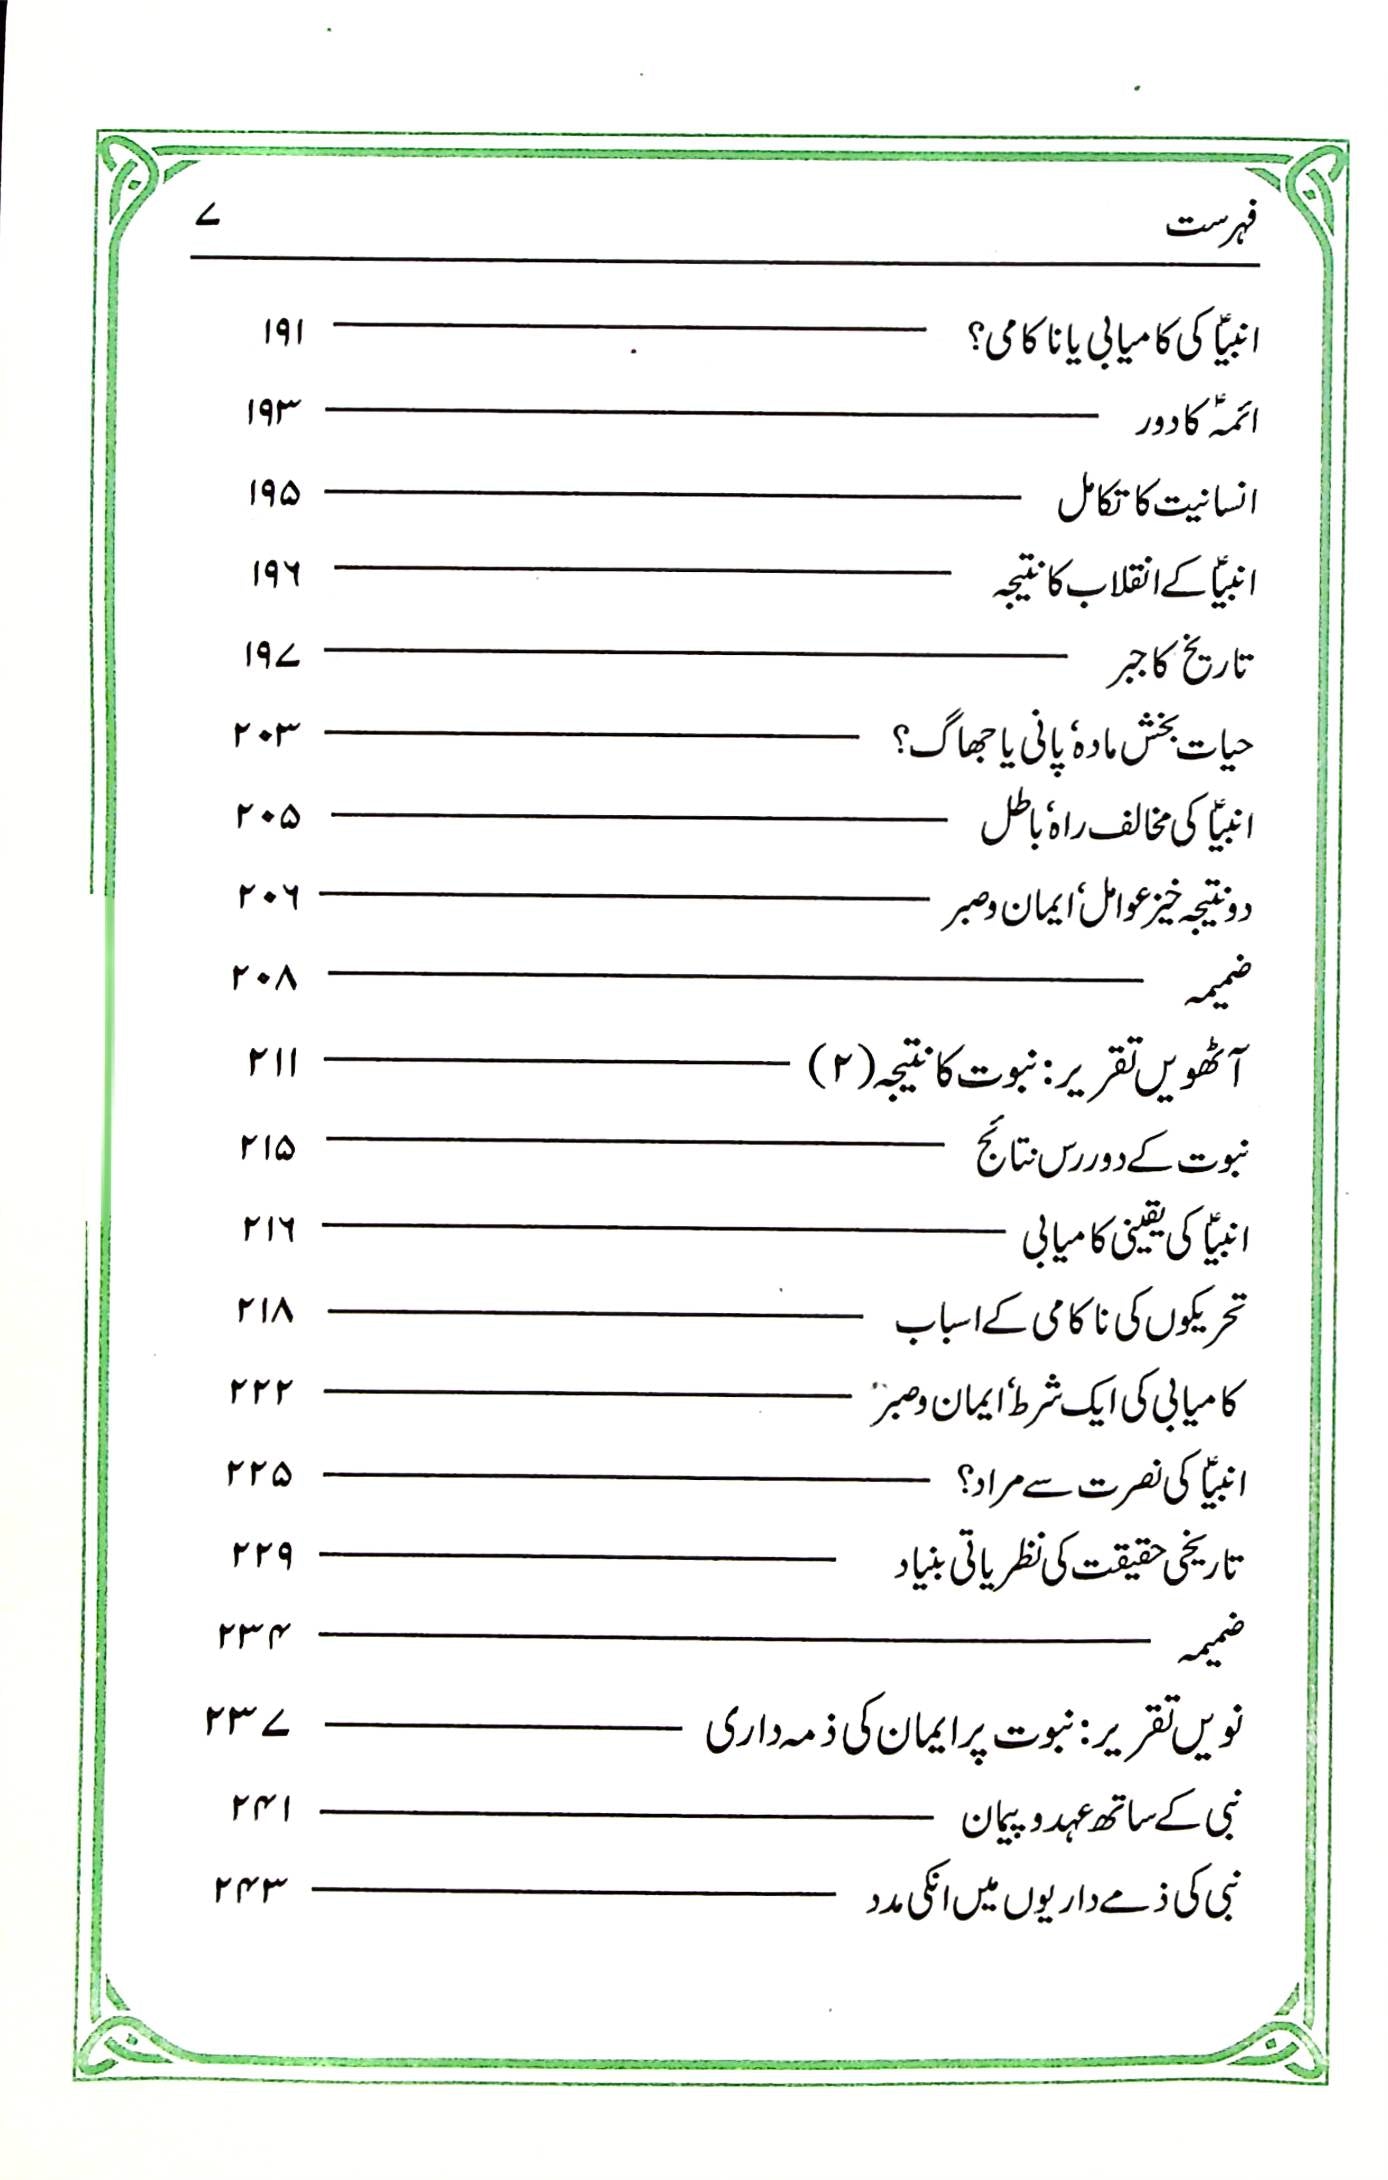 فہرست ۷
انبیاؑ کی کامیابی یا ناکامی؟ ۱۹۱
ائمہؑ کا دور ۱۹۳
انسانیت کا تکامل ۱۹۵
انبیاؑ کے انقلاب کا نتیجہ ۱۹۶
تاریخ کا جبر ۱۹۷
حیات بخش مادہ‘ پانی یا جھاگ؟ ۲۰۳
انبیاؑ کی مخالف راہ‘ باطل ۲۰۵
دو نتیجہ خیز عوامل‘ ایمان و صبر ۲۰۶
ضمیمہ ۲۰۸
آٹھویں تقریر: نبوت کا نتیجہ (۲) ۲۱۱
نبوت کے دور رس نتائج ۲۱۵
انبیاؑ کی یقینی کامیابی ۲۱۶
تحریکوں کی ناکامی کے اسباب ۲۱۸
کامیابی کی ایک شرط‘ ایمان و صبر ۲۲۲
انبیاؑ کی نصرت سے مراد؟ ۲۲۵
تاریخی حقیقت کی نظریاتی بنیاد ۲۲۹
ضمیمہ ۲۳۴
نویں تقریر: نبوت پر ایمان کی ذمہ داری ۲۳۷
نبی کے ساتھ عہد و پیمان ۲۴۱
نبی کی ذمے داریوں میں انکی مدد ۲۴۳